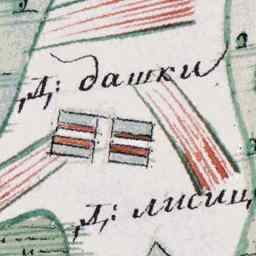 Д: дашки
Д: лисиц